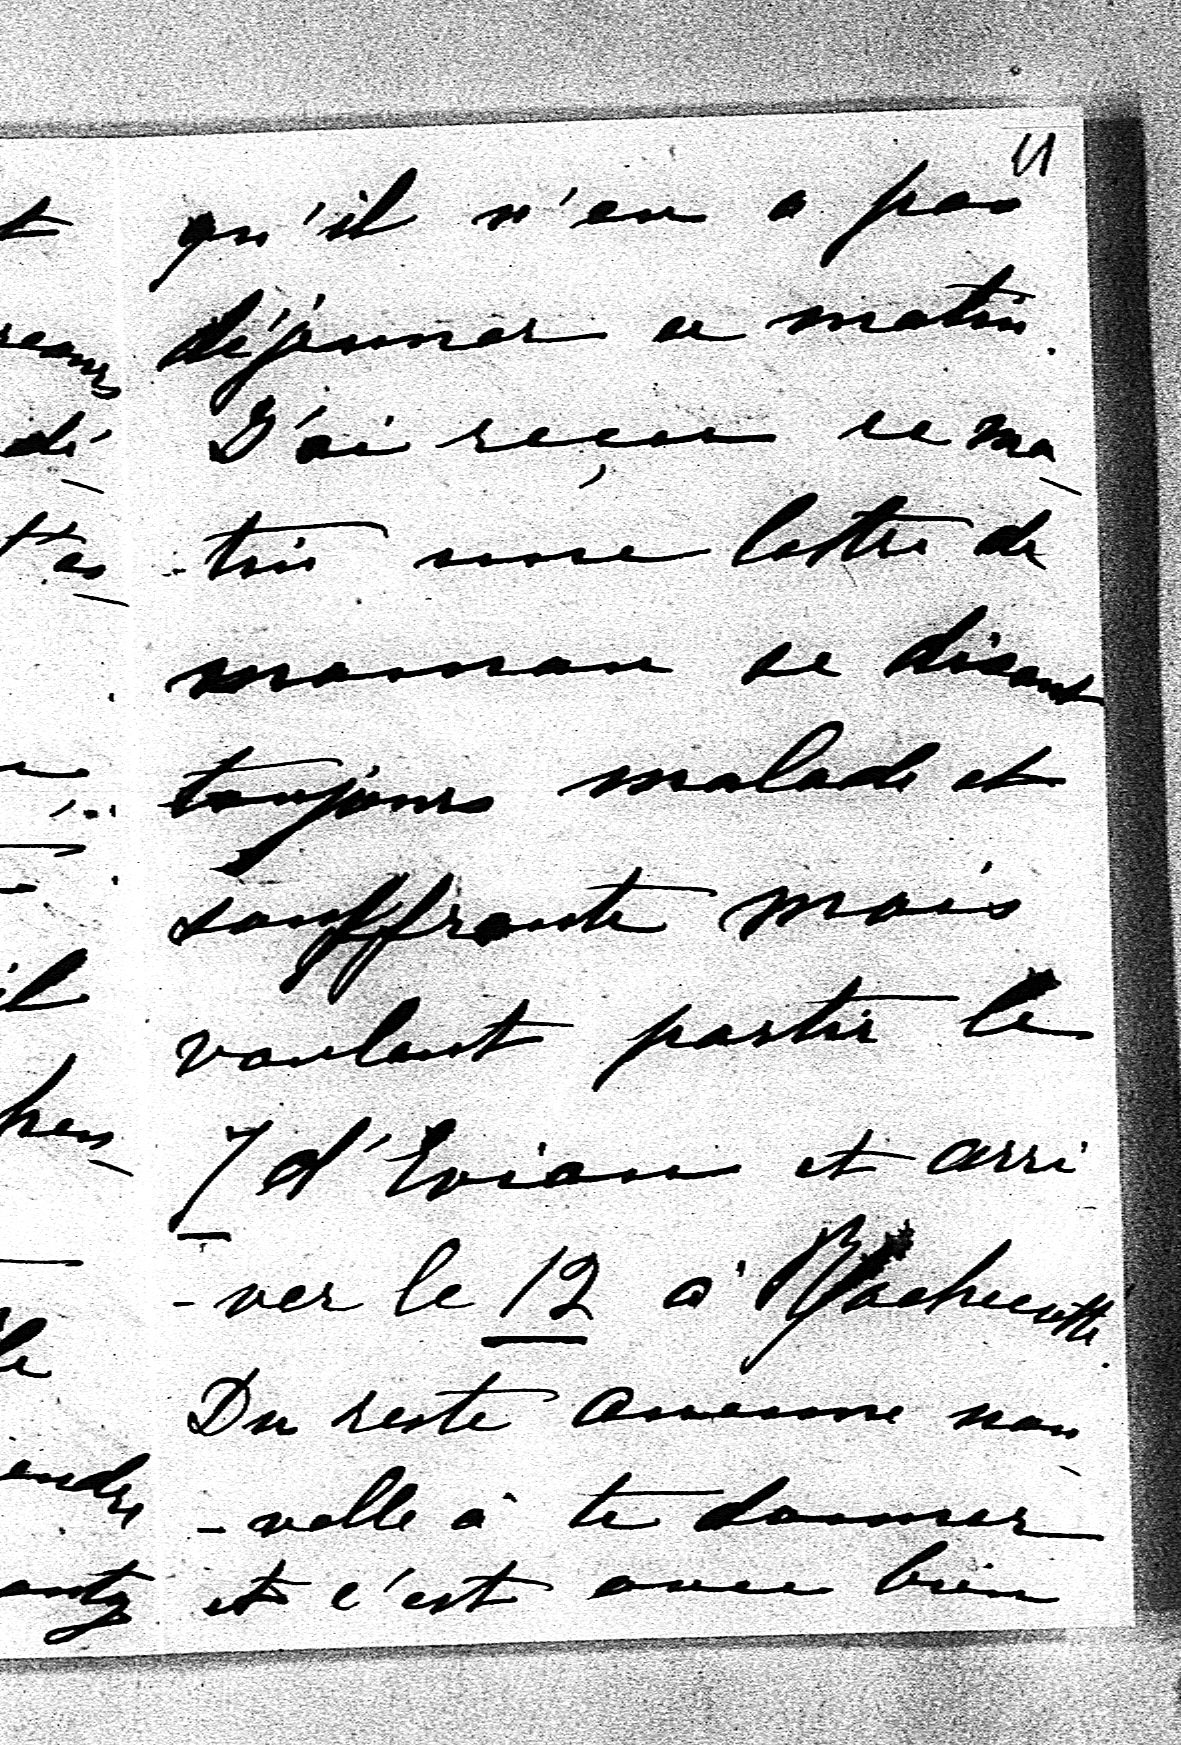 11
qu'il n'en a pas
déjeuner ce matin.
J'ai reçu ce ma
tin une lettre de
maman se disant
toujours malade et
souffrante mais
voulant partir le
7 d'Evian et arri
-ver le 12 à Rochecotte.
Du reste aucune nou
-velle à te donner
et c'est avec bien